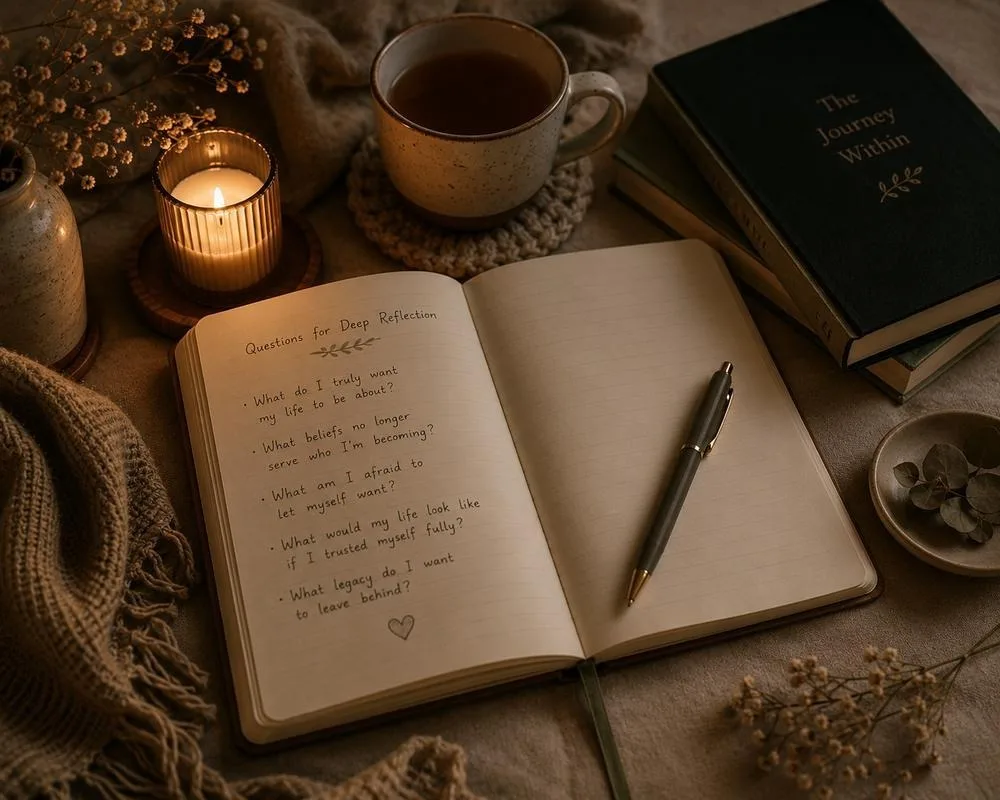 Questions for Deep Reflection
• What do I truly want
my life to be about?
• What beliefs no longer
serve who I'm becoming?
• What am I afraid to
let myself want?
• What would my life look like
if I trusted myself fully?
• What legacy do I want
to leave behind?
The
Journey
Within